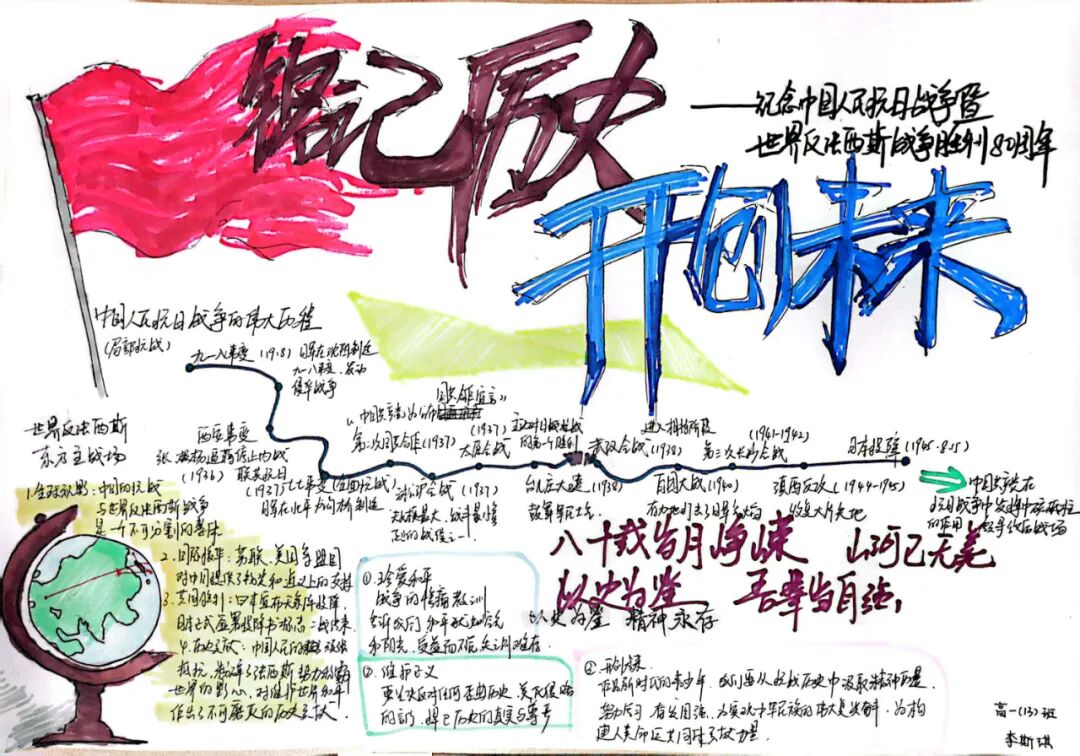 铭记历史
——纪念中国人民抗日战争暨
世界反法西斯战争胜利80周年
开创未来
中国人民抗日战争的伟大历程
(局部抗战)
九一八事变 (1918) 日军在沈阳制造
九一八事变,发动
侵华战争
世界反法西斯
东方主战场
西安事变
张 杨
(1936) 联共抗日
国共合作宣言》
第二次国共合作(1937)
(1937)
太原会战
(1937) 七七事变 (全面抗战)
日军在北平 制造
淞沪会战 (1937)
规模最大、战斗最惨
烈的战役之一
的第一个胜利
台儿庄大捷 (1938)
武汉会战 (1938)
进入相持阶段
百团大战 (1940)
第三次长沙会战
(1941-1942)
滇西反攻 (1944-1945)
收复大片失地
日本投降 (1945·8·15)
中国共产党在
抗日战争中发挥中流砥柱
的作用
1.全球视野:中国的抗战
与世界反法西斯战争
是一个不可分割的整体
2.国际援华:苏联、美国等盟国
对中国提供了物资和道义上的支持
3.共同胜利:日本宣布无条件投降,
日本正式签署投降书标志二战结束
4.历史贡献:中国人民的顽强
抵抗,粉碎了法西斯势力
世界的野心,对维护世界和平
作出了不可磨灭的历史贡献
八十载岁月峥嵘 山河已无恙
以史为鉴 吾辈当自强,
以史为鉴 精神永存
①珍爱和平
战争的惨痛教训
告诉我们和平
和阳光,受益而不觉,失之则难存
②维护正义
要坚决反对任何歪曲历史、美化侵略
的言行,捍卫历史的真实与尊严
②开创未来
作为新时代的青少年,我们要从抗战历史中汲取精神力量,
努力学习,奋发图强,为实现中华民族的伟大复兴 ,为构
建人类命运共同体 贡献力量.
高一(13)班
李斯琪